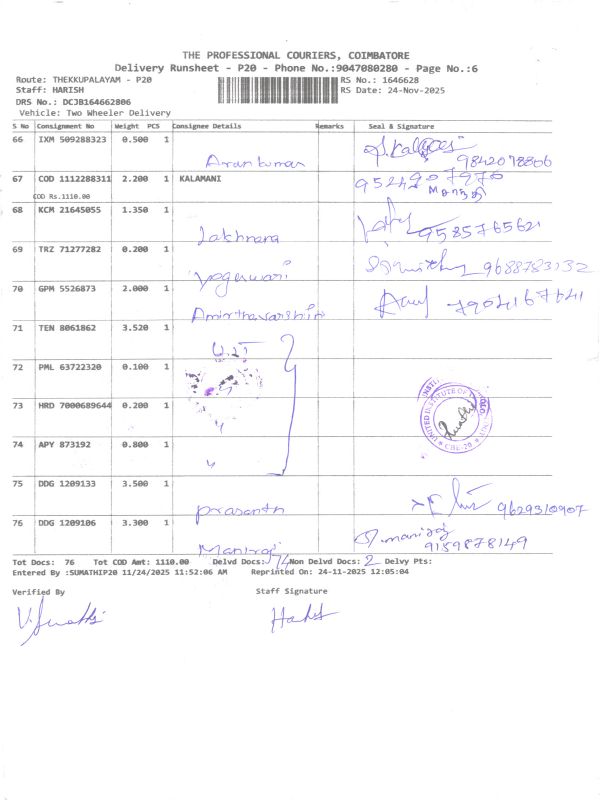 THE PROFESSIONAL COURIERS, COIMBATORE
Delivery Runsheet - P20 - Phone No.:9047080280 - Page No.:6
Route: THEKKUPALAYAM - P20 RS No.: 1646628
Staff: HARISH RS Date: 24-Nov-2025
DRS No.: DCJB164662806
Vehicle: Two Wheeler Delivery
S No Consignment No Weight PCS Consignee Details Remarks Seal & Signature
66 IXM 509288323 0.500 1
Arankumar 9842078806
67 COD 1112288311 2.200 1 KALAMANI 9524907970
COD Rs.1110.00
68 KCM 21645055 1.350 1
958576562
69 TRZ 71277282 0.200 1
Yogeswari 9688783132
70 GPM 5526873 2.000 1
Amirthavarshini 7904167641
71 TEN 8061862 3.520 1
U.I.T
72 PML 63722320 0.100 1
73 HRD 7000689644 0.200 1
UNITED INSTITUTE OF
CBE-20
74 APY 873192 0.800 1
75 DDG 1209133 3.500 1
Prasanth 9629310907
76 DDG 1209106 3.300 1
Maniraj 9159878149
Tot Docs: 76 Tot COD Amt: 1110.00 Delvd Docs: 74 Non Delvd Docs: 2 Delvy Pts:
Entered By :SUMATHIP20 11/24/2025 11:52:06 AM Reprinted On: 24-11-2025 12:05:04
Verified By Staff Signature